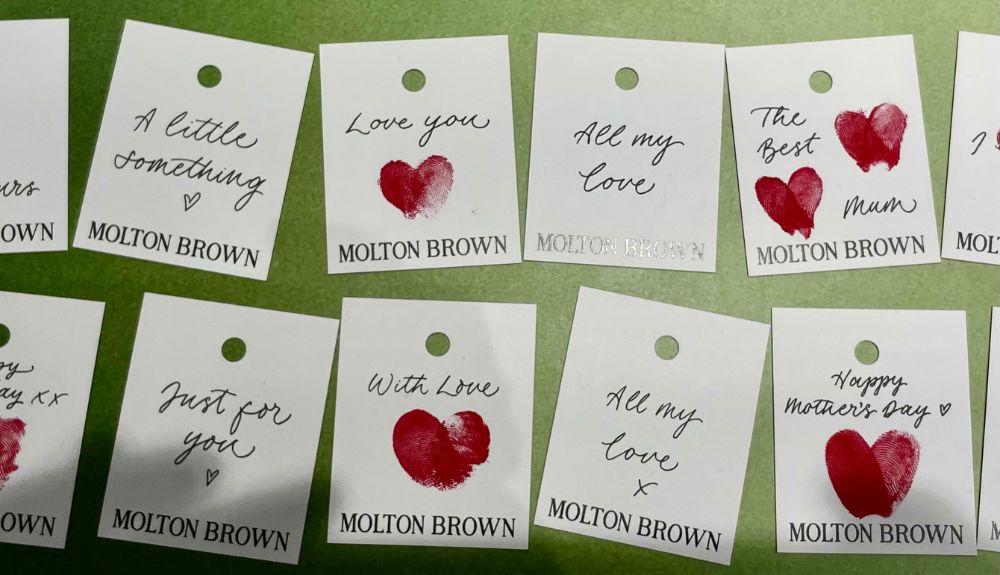 OWN
A little
something
MOLTON BROWN
Love you
MOLTON BROWN
All my
love
MOLTON BROWN
The
Best
Mum
MOLTON BROWN
I
MOLT
ay xx
OWN
Just for
you
MOLTON BROWN
With Love
MOLTON BROWN
All my
love
x
MOLTON BROWN
Happy
Mother's Day
MOLTON BROWN